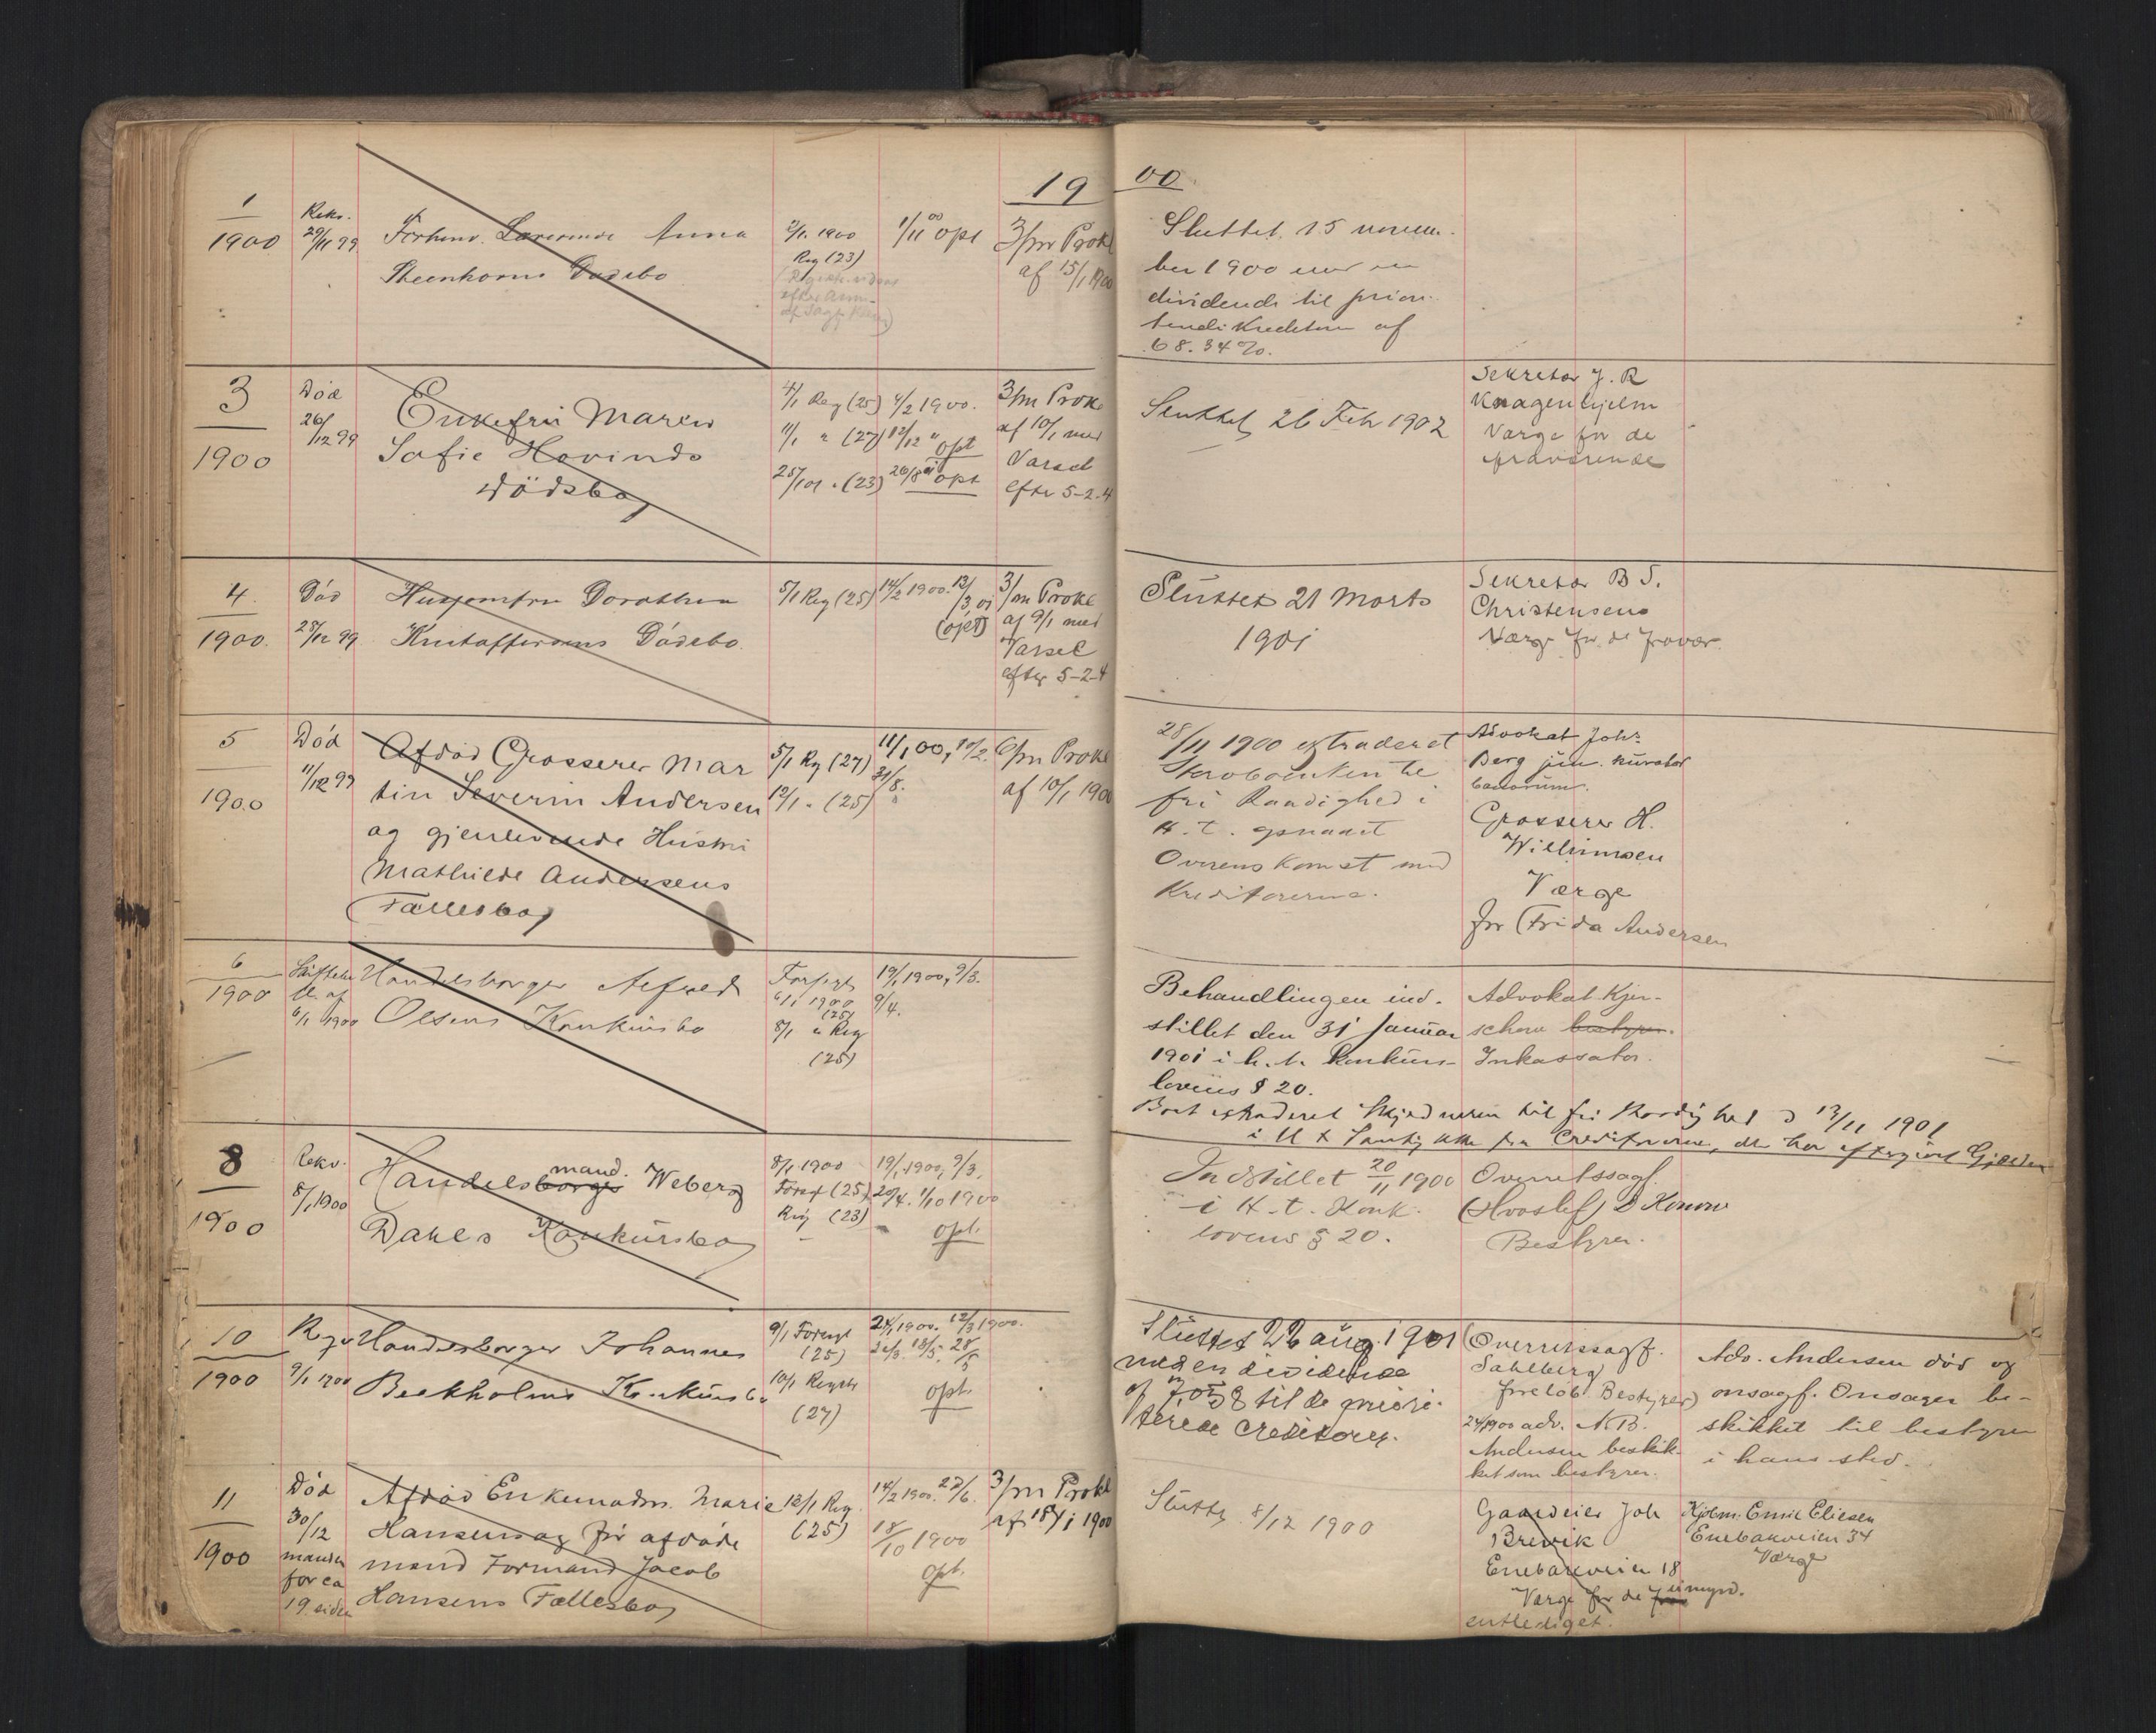 19 00
1
1900
Reko.
29/11 99
Forhenv. Lærerinde Anna
Steenhoms Dødsbo
2/1. 1900
Reg (23)
1/11 00 opt
3/m Prokl
af 15/1 1900
Sluttet 15 novem-
ber 1900 med en
dividende til prior.
kreditorer af
68.34%.
3
1900
Død
26/12 99
Enkefru Maren
Sofie Hovinds
Dødsbo
4/1 Reg (25)
11/1 " (27)
25/1 01 . (23)
4/2 1900.
12/12 " opt
26/8 01 opt
3/m Prok.
af 10/1 med
Varsel
efter 5-2-4
Sluttet 26 Feb 1902
Sekretær J. R
Knagenhjelm
Værge for de
fraværende
4
1900.
Død
28/12 99
Husjomfru Dorothea
Kristoffersens Dødsbo.
5/1 Reg (25)
14/2 1900. 13/3 01
(opt)
3/m Prokl
af 9/1 med
Varsel
efter 5-2-4
Sluttet 21 Marts
1901
Sekretær B S.
Christensens
Værge for de fravær.
5
1900
Død
11/12 99
Afdød Grosserer Mar
tin Severin Andersen
og gjenlevende Hustru
Mathilde Andersens
Fællesbo
5/1 Reg (27)
12/1 " (25)
11/1 00, 10/2.
31/8. "
6/m Prokl
af 10/1 1900
28/11 1900 extraderet
Skrabøenken til
fri Raadighed i
H. t. opnaaet
Overenskomst med
Kreditorerne.
Advokat Johs
Berg jun. kurator
bonorum.
Grosserer H.
Willumsen
Værge
for Frida Andersen
6
1900
Skiftebe
sl. af
6/1 1900
Handelsborger Alfred
Olsens Konkursbo
Forsegl
6/1 1900
(25)
8/1 " Reg
(25)
19/1 1900, 9/3.
9/4.
Behandlingen ind-
stillet den 31 Januar
1901 i h. t. konkurs-
lovens § 20.
Boet extraderet Skyldneren til fri Raadighed d 13/11 1901
i H t Samtykke fra Creditorerne, der har eftergivet Gjælden
Advokat Kjer-
schow bestyrer.
Inkassator.
8
1900
Rekv.
8/1 1900
mand.
Handelsborger Weberg
Dahls Konkursbo
8/1 1900
Forsgl (25)
Reg (23)
19/1 1900, 9/3.
20/4. 1/10 1900
opt.
Indstillet 20/11 1900
i H. t. Konk.
lovens § 20.
Overretssagf.
(Hroslef) D Konow
Bestyrer.
10
1900
Rekv
9/1 1900
Handelsborger Johannes
Beckholms Konkursbo
9/1 Forsegl
(25)
10/1 Regstr
(27)
24/1 1900. 12/3 1900.
opt.
Sluttet 22 aug. 1901
med en dividende
af 7,078 til de priori-
terede creditorer.
Overretssagf.
Sahlberg
foreløb. Bestyrer)
24/1 1900 adv. N. B.
Andersen beskik-
ket som bestyrer.
Adv. Andersen død og
onsagf. Onsager be-
skikket til bestyrer
i hans sted.
11
1900
Død
30/12
manden
for ca
19 siden
Afdød Enkemadm. Marie
Hansens og før afdøde
mand Formand Jacob
Hansens Fællesbo
12/1 Reg.
(25)
14/2 1900. 22/6.
18/10 1900
opt.
3/m Prokl
af 18/1 1900
Slutt. 8/12 1900
Gaardeier Joh
Brevik
Enebakveien 18
Værge for de fra umynd.
entlediget.
Kjøbm. Emil Eliesen
Enebakveien 34
Værge